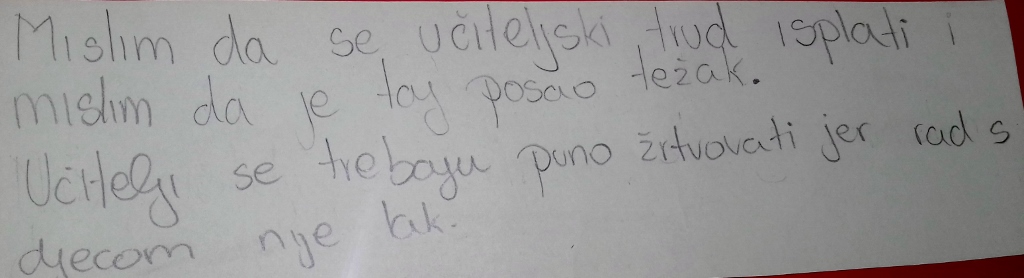 Mislim da se učiteljski trud isplati i
mislim da je taj posao težak.
Učitelji se trebaju puno žrtvovati jer rad s
djecom nije lak.